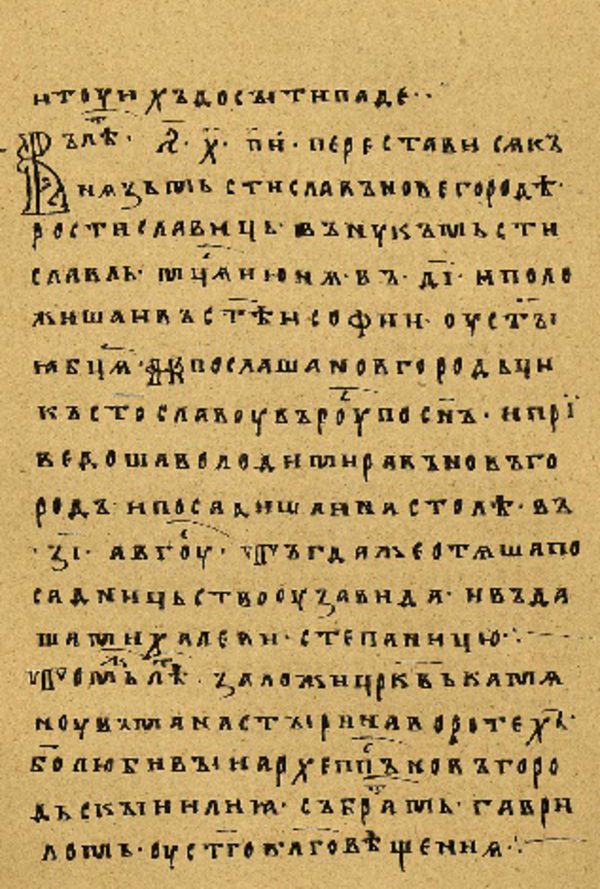 и тоу ихъ досыти паде ·
Въ лѣт · ҂ѕ · х · пи · переставися к
нязь мьстиславъ новегородѣ ·
ростиславиць · вънукъ мьсти
славль · мцⷭ҇я июня · въ · дı · и поло
жиша и въ стѣи софии · оу стыı
ꙗ бцѧ · и послаша новгородьци
къ стославоу въ роу по снъ · и при
ведоша володимира къ новъго
родъ и посадиша и на столѣ · въ
· зı · авгоу · Тъгда же отяша по
садницьство оу завида · и въда
ша михалеви · степаницю ·
Томь лѣ заложи црквь камя
ноу в манастыри на воротехъ ·
болюбивыи археппъ новъгоро
дьскыи илия · съ братмь · гаври
ломь · оу стго благовѣщения ·